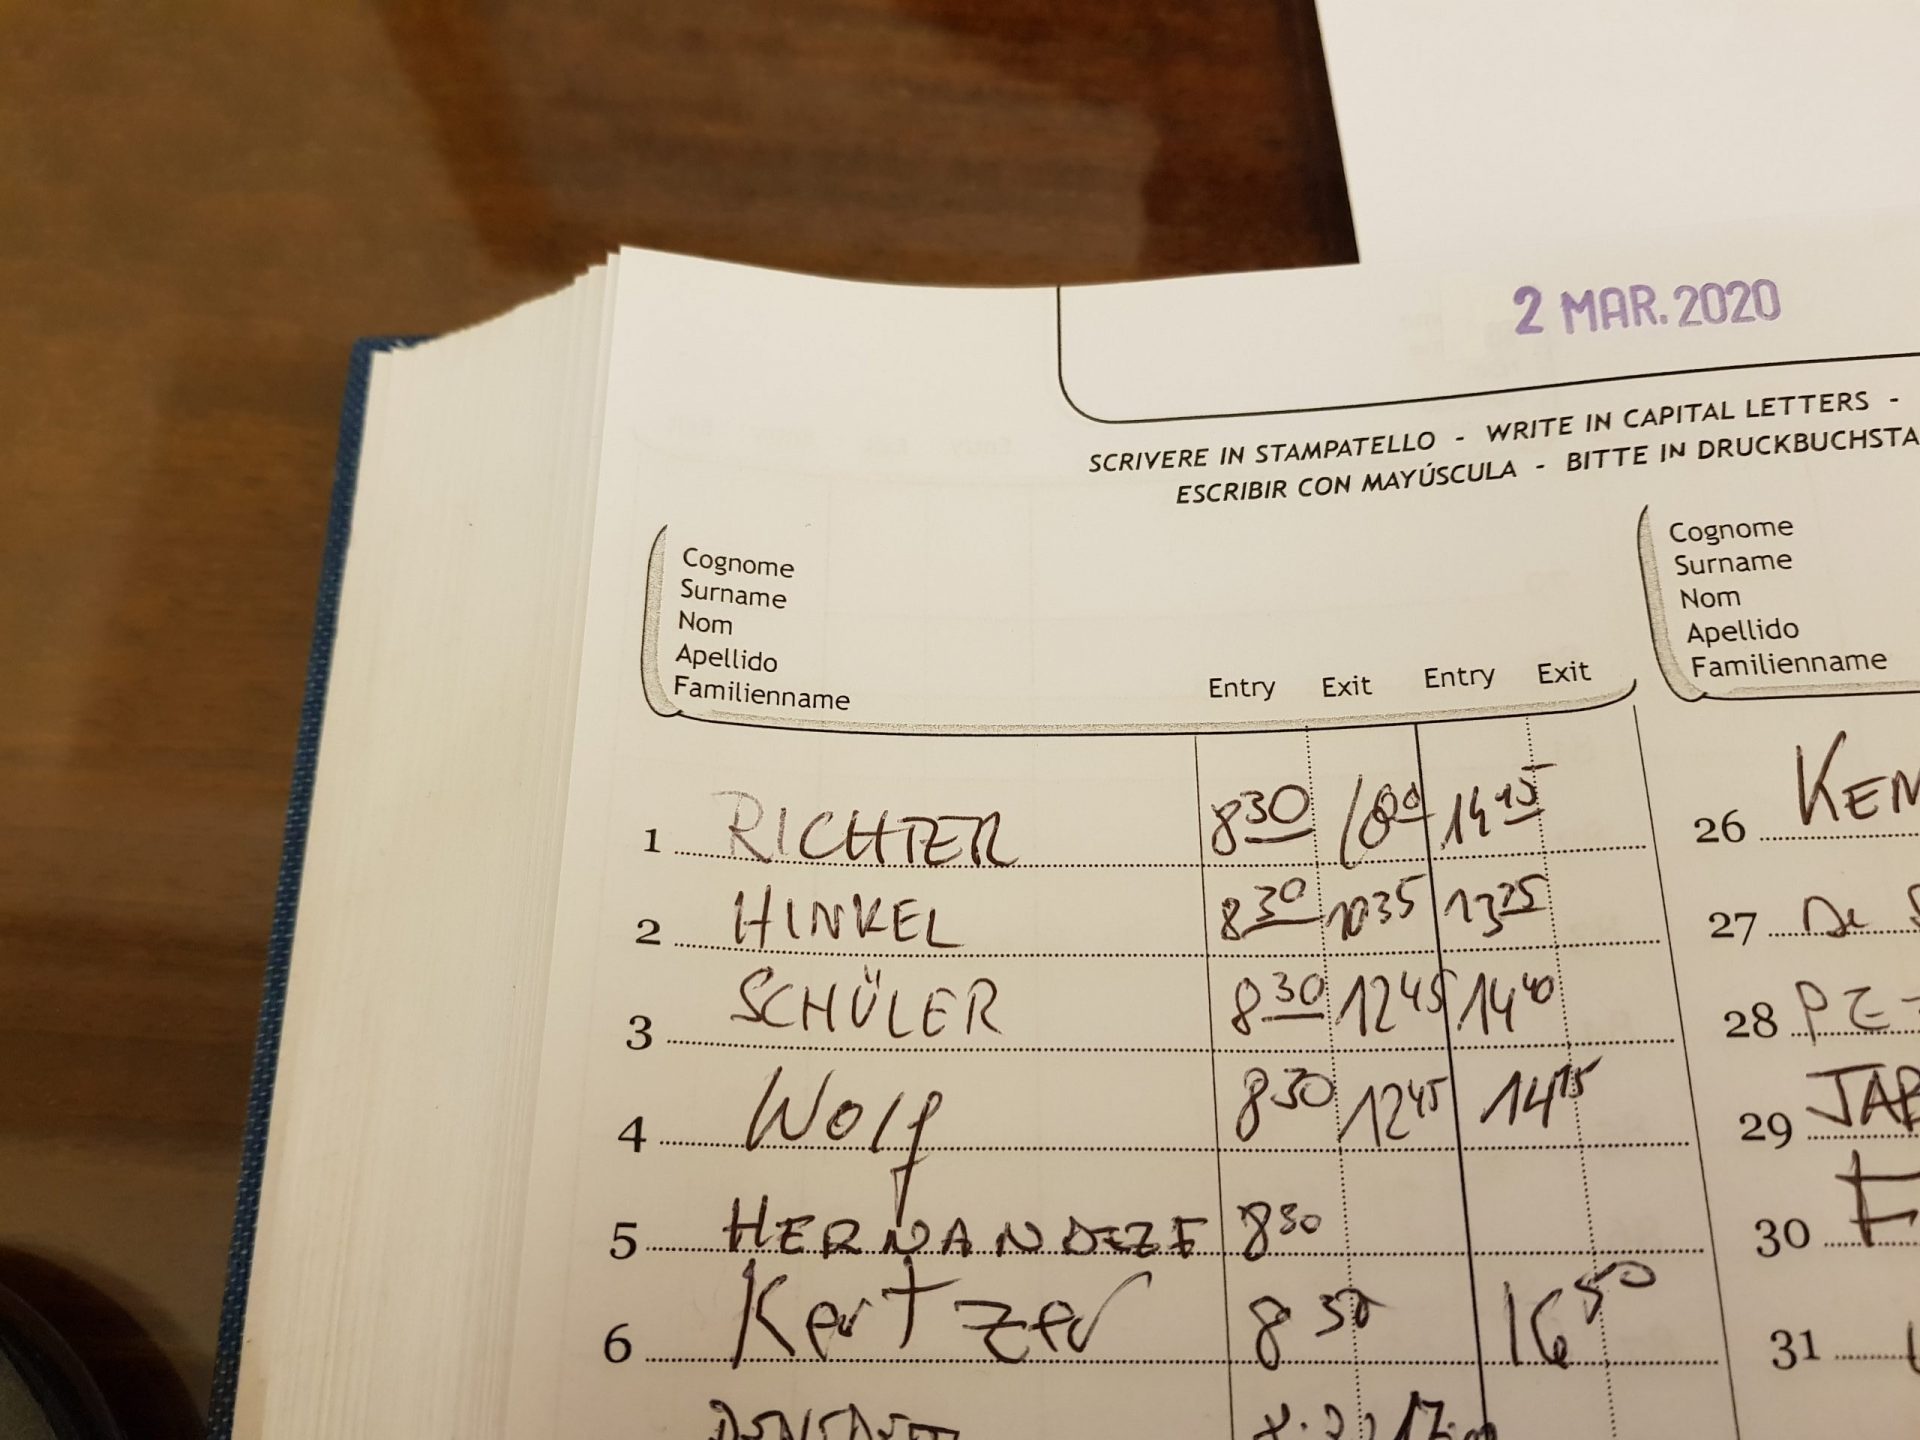 2 MAR. 2020
SCRIVERE IN STAMPATELLO - WRITE IN CAPITAL LETTERS -
ESCRIBIR CON MAYÚSCULA - BITTE IN DRUCKBUCHSTA
Cognome
Surname
Nom
Apellido
Familienname
Entry Exit Entry Exit
Cognome
Surname
Nom
Apellido
Familienname
1 RICHTER 8 30 10 00 14 15
2 HINKEL 8 30 10 35 13 25
3 SCHÜLER 8 30 12 45 14 40
4 Wolf 8 30 12 45 14 15
5 8 30
6 Kertzer 8 30 16 50
26 KEM
27 De
28
29 JAB
30
31